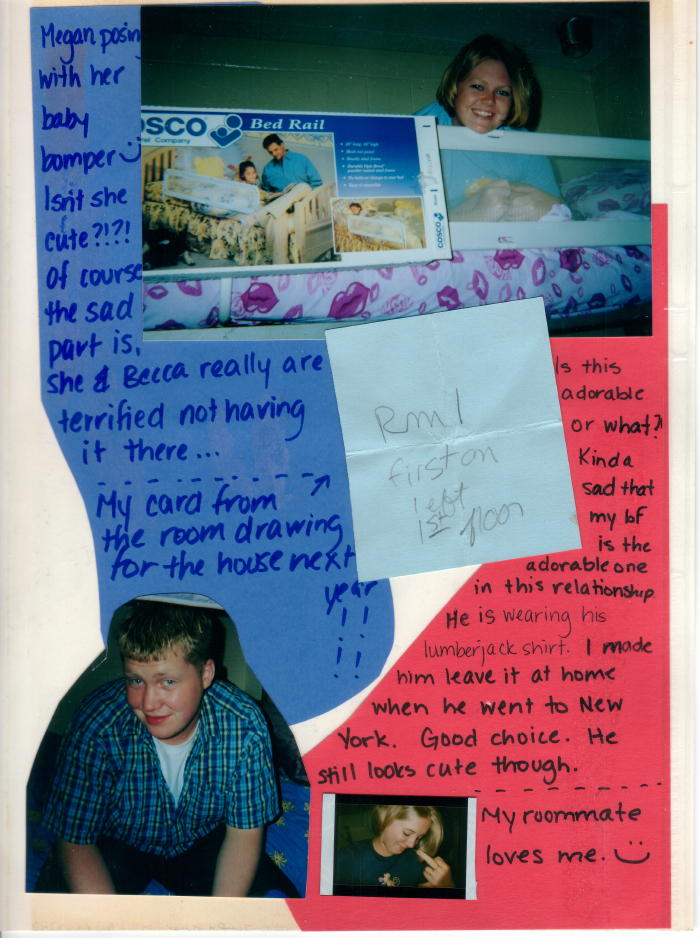 Megan posin
with her
baby
bomper
Isn't she
cute?!?!
Of course
the sad
part is,
she & Becca really are
terrified not having
it there...
My card from
the room drawing
for the house next
year
!!
!!
OSCO
Bed Rail
COSCO
Rm 1
first on
left
1st floor
Is this
adorable
or what?!
Kinda
sad that
my bf
is the
adorable one
in this relationship.
He is wearing his
lumberjack shirt. I made
him leave it at home
when he went to New
York. Good choice. He
still looks cute though.
My roommate
loves me.